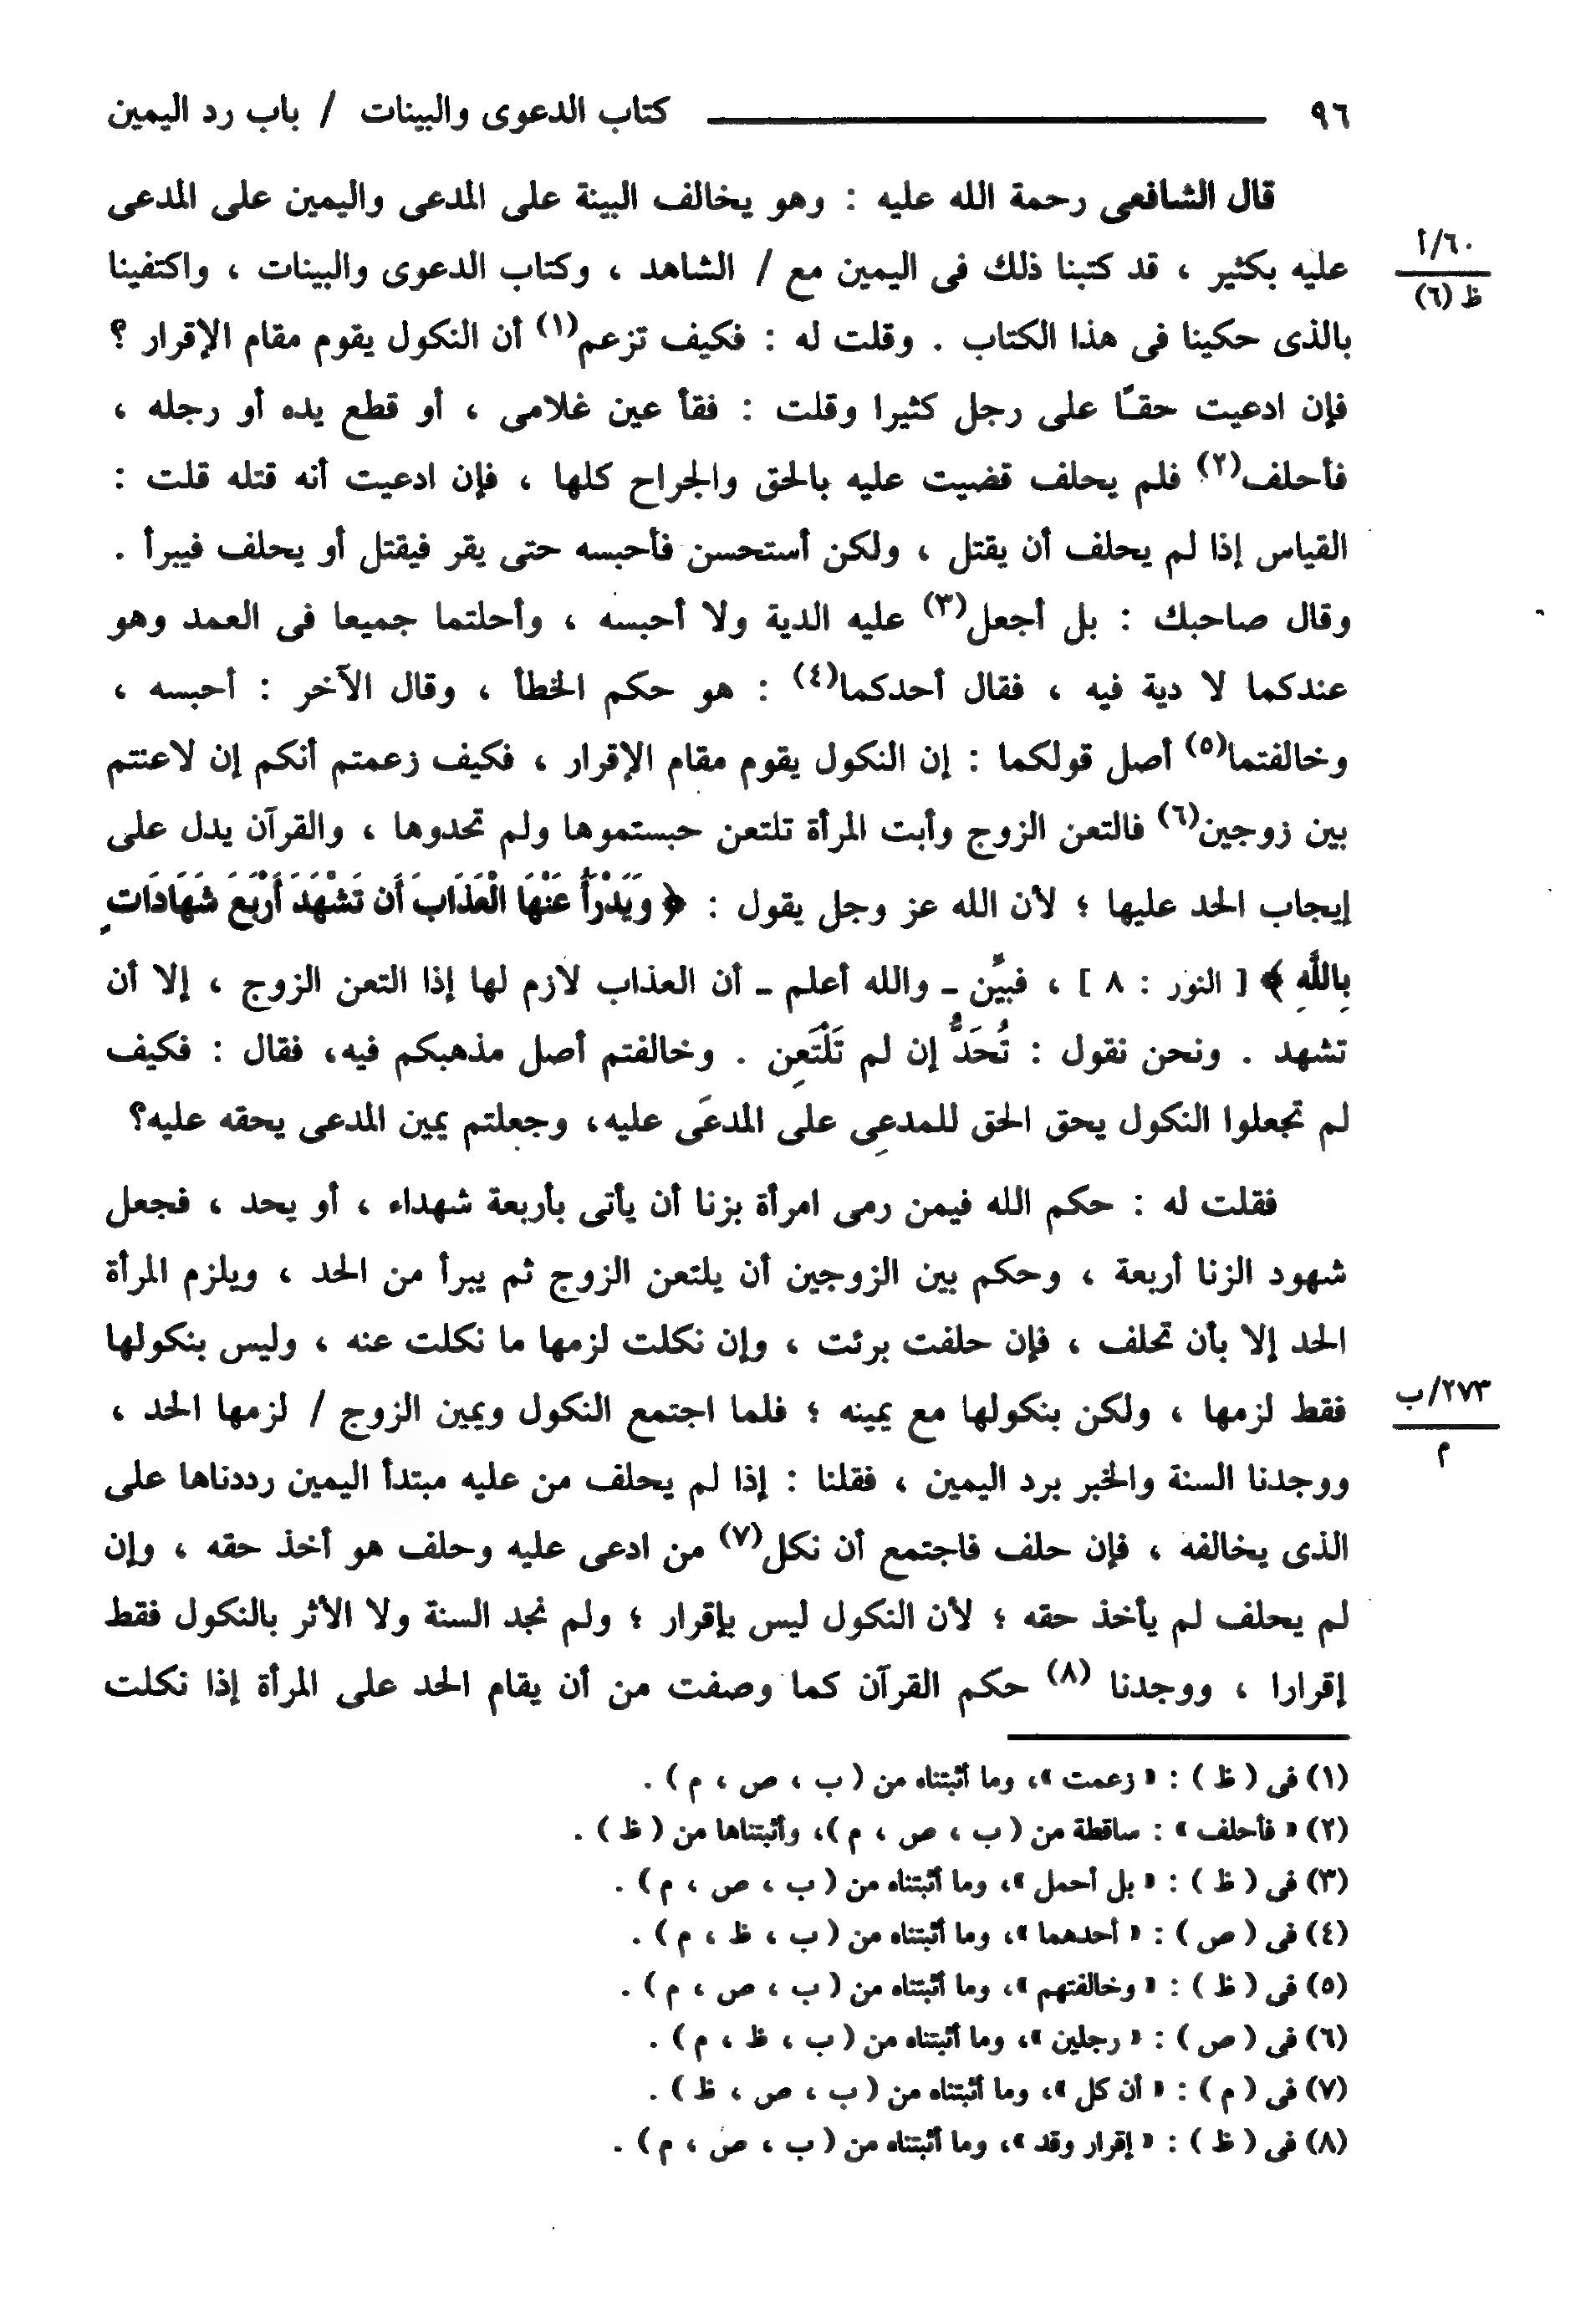 ٩٦ كتاب الدعوى والبينات / باب رد اليمين
قال الشافعى رحمة الله عليه : وهو يخالف البينة على المدعى واليمين على المدعى
عليه بكثير ، قد كتبنا ذلك فى اليمين مع / الشاهد ، وكتاب الدعوى والبينات ، واكتفينا
٦٠/أ
ظ (٦)
بالذى حكينا فى هذا الكتاب . وقلت له : فكيف تزعم(١) أن النكول يقوم مقام الإقرار ؟
فإن ادعيت حقـًا على رجل كثيرا وقلت : فقأ عين غلامى ، أو قطع يده أو رجله ،
فأحلف(٢) فلم يحلف قضيت عليه بالحق والجراح كلها ، فإن ادعيت أنه قتله قلت :
القياس إذا لم يحلف أن يقتل ، ولكن أستحسن فأحبسه حتى يقر فيقتل أو يحلف فيبرأ .
وقال صاحبك : بل أجعل(٣) عليه الدية ولا أحبسه ، وأحلتما جميعا فى العمد وهو
عندكما لا دية فيه ، فقال أحدكما(٤) : هو حكم الخطأ ، وقال الآخر : أحبسه ،
وخالفتما(٥) أصل قولكما : إن النكول يقوم مقام الإقرار ، فكيف زعمتم أنكم إن لاعنتم
بين زوجين(٦) فالتعن الزوج وأبت المرأة تلتعن حبستموها ولم تحدوها ، والقرآن يدل على
إيجاب الحد عليها ؛ لأن الله عز وجل يقول : ﴿ وَيَدْرَأُ عَنْهَا الْعَذَابَ أَن تَشْهَدَ أَرْبَعَ شَهَادَاتٍ
بِاللَّهِ ﴾ [ النور : ٨ ] ، فبيَّن ـ والله أعلم ـ أن العذاب لازم لها إذا التعن الزوج ، إلا أن
تشهد . ونحن نقول : تُحَدُّ إن لم تَلْتَعِن . وخالفتم أصل مذهبكم فيه، فقال : فكيف
لم تجعلوا النكول يحق الحق للمدعِى على المدعَى عليه، وجعلتم يمين المدعى يحقه عليه؟
فقلت له : حكم الله فيمن رمى امرأة بزنا أن يأتى بأربعة شهداء ، أو يحد ، فجعل
شهود الزنا أربعة ، وحكم بين الزوجين أن يلتعن الزوج ثم يبرأ من الحد ، ويلزم المرأة
الحد إلا بأن تحلف ، فإن حلفت برئت ، وإن نكلت لزمها ما نكلت عنه ، وليس بنكولها
فقط لزمها ، ولكن بنكولها مع يمينه ؛ فلما اجتمع النكول ويمين الزوج / لزمها الحد ،
٢٧٣/ب
م
ووجدنا السنة والخبر برد اليمين ، فقلنا : إذا لم يحلف من عليه مبتدأ اليمين رددناها على
الذى يخالفه ، فإن حلف فاجتمع أن نكل(٧) من ادعى عليه وحلف هو أخذ حقه ، وإن
لم يحلف لم يأخذ حقه ؛ لأن النكول ليس بإقرار ؛ ولم نجد السنة ولا الأثر بالنكول فقط
إقرارا ، ووجدنا (٨) حكم القرآن كما وصفت من أن يقام الحد على المرأة إذا نكلت
(١) فى ( ظ ) : « زعمت »، وما أثبتناه من ( ب ، ص ، م ) .
(٢) « فأحلف » : ساقطة من ( ب ، ص ، م )، وأثبتناها من ( ظ ) .
(٣) فى ( ظ ) : « بل أحمل »، وما أثبتناه من ( ب ، ص ، م ) .
(٤) فى ( ص ) : « أحدهما »، وما أثبتناه من ( ب ، ظ ، م ) .
(٥) فى ( ظ ) : « وخالفتهم »، وما أثبتناه من ( ب ، ص ، م ) .
(٦) فى ( ص ) : « رجلين »، وما أثبتناه من ( ب ، ظ ، م ) .
(٧) فى ( م ) : « أن كل »، وما أثبتناه من ( ب ، ص ، ظ ) .
(٨) فى ( ظ ) : « إقرار وقد »، وما أثبتناه من ( ب ، ص ، م ) .